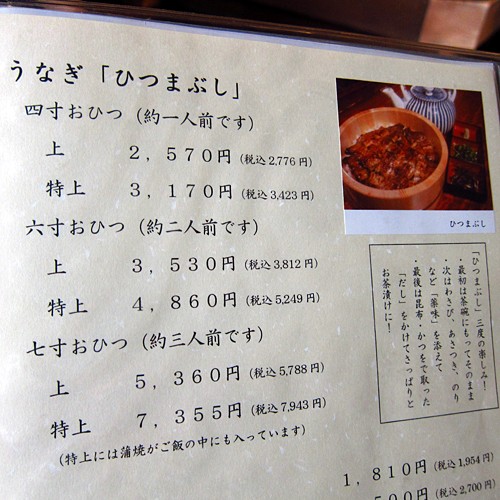 うなぎ「ひつまぶし」
四寸おひつ（約一人前です）
上 ２，５７０円（税込2,776円）
特上 ３，１７０円（税込3,423円）
六寸おひつ（約二人前です）
上 ３，５３０円（税込3,812円）
特上 ４，８６０円（税込5,249円）
七寸おひつ（約三人前です）
上 ５，３６０円（税込5,788円）
特上 ７，３５５円（税込7,943円）
（特上には蒲焼がご飯の中にも入っています）
ひつまぶし
「ひつまぶし」三度の楽しみ！
・最初は茶碗にもってそのまま
・次はわさび、あさつき、のり
など「薬味」を添えて
・最後は昆布・かつをで取った
「だし」をかけてさっぱりと
お茶漬けに！
１，８１０円（税込1,954円）
５００円（税込2,700円）